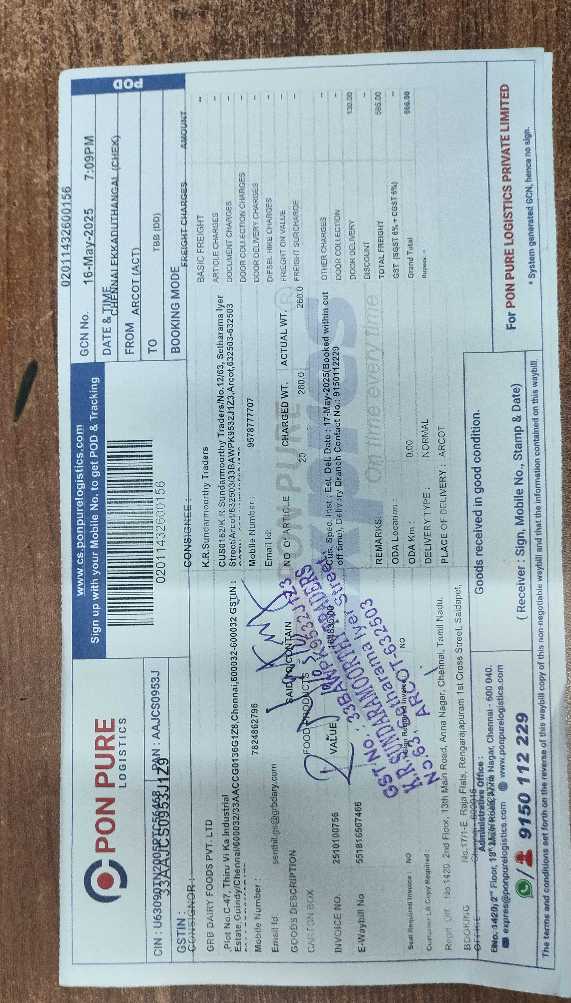 PON PURE
LOGISTICS
www.cs.ponpurelogistics.com
Sign up with your Mobile No. to get POD & Tracking
02011432600156
POD
02011432600156
GCN No. 16-May-2025 7:09PM
DATE & TIME
CHENNAI EKKADUTHANGAL (CHEK)
FROM ARCOT (ACT)
TO TBB (DD)
BOOKING MODE
CIN : PAN : AAJCS0953J
GSTIN : 33AAJCS0953J1Z9
CONSIGNOR :
GRB DAIRY FOODS PVT. LTD
Plot No C-47, Thiru Vi Ka Industrial
Estate, Guindy/Chennai/600032/33AACCG0136G1Z8,Chennai,600032-600032 GSTIN :
Mobile Number : 7824862796
Email Id senthil.gs@grbdairy.com
GOODS DESCRIPTION SAID TO CONTAIN
CARTON BOX FOOD PRODUCTS
INVOICE NO. 2510100756 VALUE
E-Waybill No 551816507466
Seal Required Invoice : NO
NO
Customer LR Copy Required :
CONSIGNEE :
K.R.Sundarmourthy Traders
CUS6162/K.R.Sundarmourthy Traders/No.12/63, Setharama Iyer
Street/Arcot/632503/33BAWPK9532J1Z3,Arcot,632503-632503
Mobile Number: 9578777707
Email Id:
NO OF ARTICLE CHARGED WT. ACTUAL WT.
20 260.0 260.0
Cus. Spec. Inst : Est. Del. Date : 17-May-2025(Booked within cut
off time), Delivery Branch Contact No.: 9150112229
REMARKS:
ODA Location :
ODA Km : 0.00
DELIVERY TYPE : NORMAL
PLACE OF DELIVERY : ARCOT
FREIGHT CHARGES AMOUNT
BASIC FREIGHT --
ARTICLE CHARGES --
DOCUMENT CHARGES --
DOOR COLLECTION CHARGES --
DOOR DELIVERY CHARGES --
DIESEL HIKE CHARGES --
FREIGHT ON VALUE --
FREIGHT SURCHARGE --
OTHER CHARGES --
DOOR COLLECTION --
DOOR DELIVERY 130.00
DISCOUNT --
TOTAL FREIGHT
GST (SGST 6% + CGST 6%) --
Grand Total
Rupees. *
PON PURE
xpres
on time every time
GST No : 33BAWPK9532J1Z3
K.R. SUNDARAMOORTHY TRADERS
No.63, Seetharama Iyer Street,
ARCOT-632503
Regd. Off : No 1420, 2nd Floor, 13th Main Road, Anna Nagar, Chennai, Tamil Nadu.
BOOKING OFFICE No.17/1-E, Raja Flats, Rengarajapuram 1st Cross Street, Saidapet,
Administrative Office :
No. 1420, 2nd Floor, 13th Main Road, Anna Nagar, Chennai - 600 040.
expres@ponpurelogistics.com www.ponpurelogistics.com
9150 112 229
Goods received in good condition.
( Receiver : Sign, Mobile No., Stamp & Date)
For PON PURE LOGISTICS PRIVATE LIMITED
* System generated GCN, hence no sign.
The terms and conditions set forth on the reverse of this waybill copy of this non-negotiable waybill and that the information contained on this waybill